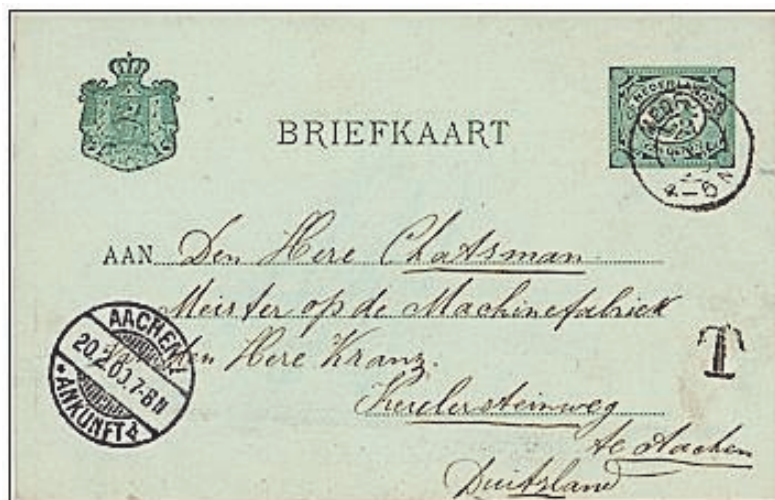 BRIEFKAART
AAN Den Here Chatsman
Meister op de Machinefabriek
den Here Kranz.
te Aachen
Duitsland
T
AACHEN
20.2.00.7-8N
*ANKUNFT 4